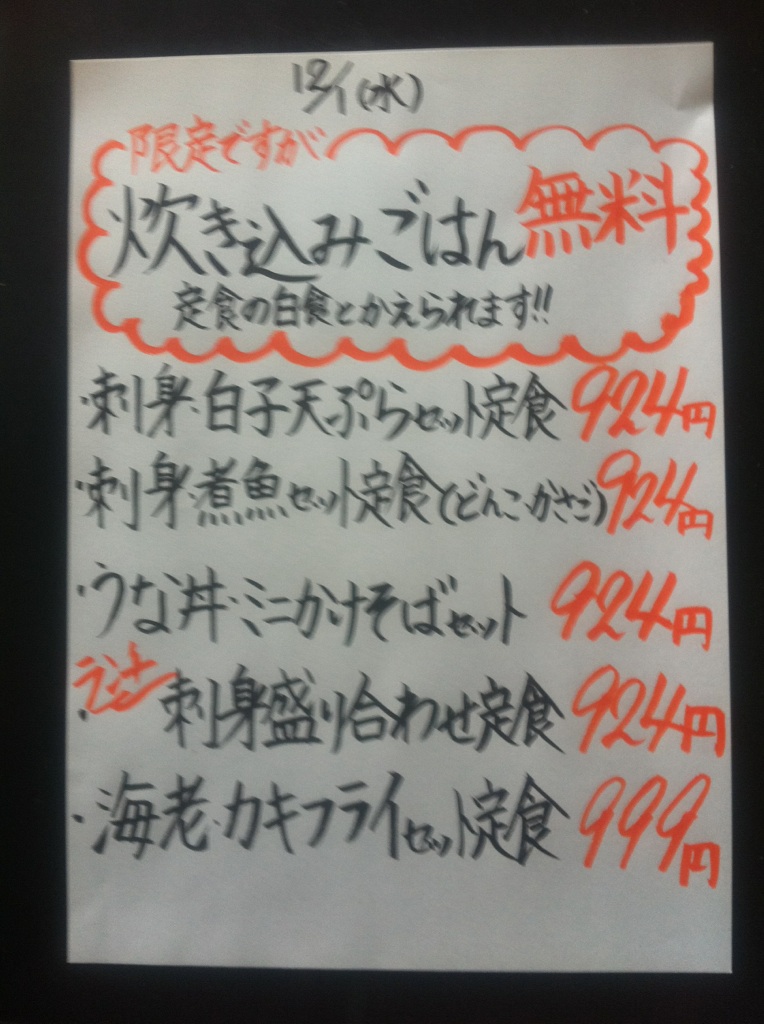 12/1(水)
限定ですが
炊き込みごはん無料
定食の白食とかえられます!!
・刺身・白子天ぷらセット定食 924円
・刺身・煮魚セット定食(どんこ・かさご) 924円
・うな丼・ミニかけそばセット 924円
・ランチ 刺身盛り合わせ定食 924円
・海老・カキフライセット定食 999円